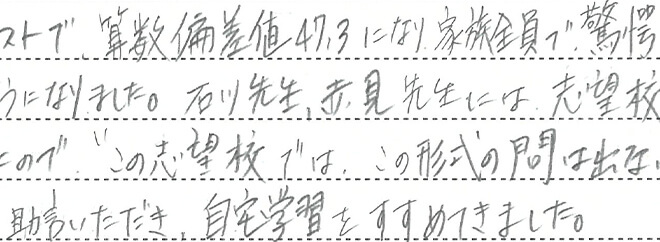 ストで、算数偏差値47.3になり、家族全員で驚愕
うになりました。石川先生、赤見先生には、志望校
たので、"この志望校では、この形式の問は出な
助言いただき、自宅学習をすすめてきました。